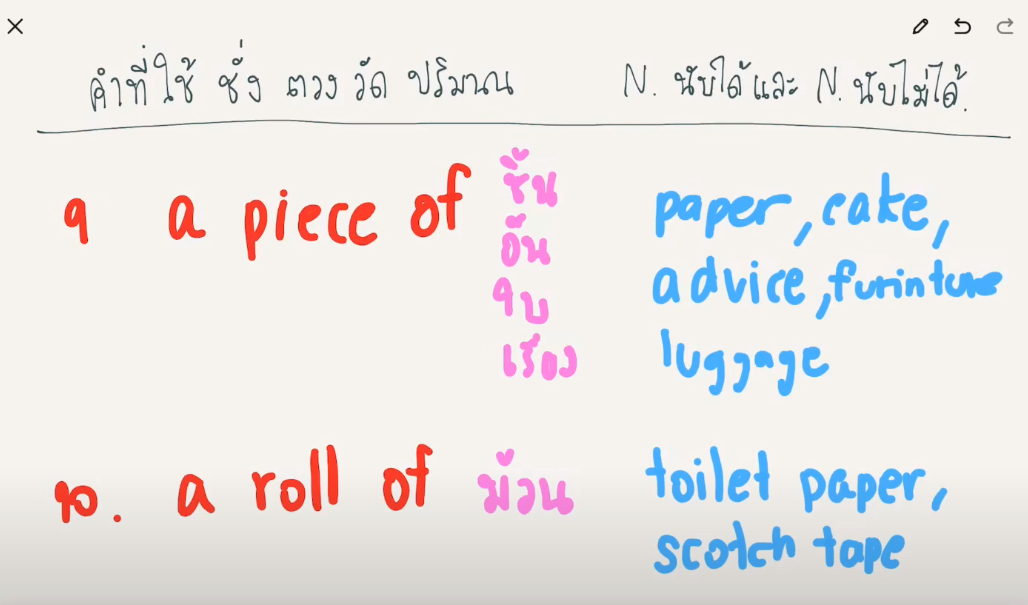 คำที่ใช้ ชั่ง ตวง วัด ปริมาณ N. นับได้ และ N. นับไม่ได้.
9 a piece of ชิ้น paper, cake,
อัน advice, furinture
ใบ luggage
เรื่อง
10. a roll of ม้วน toilet paper,
scotch tape